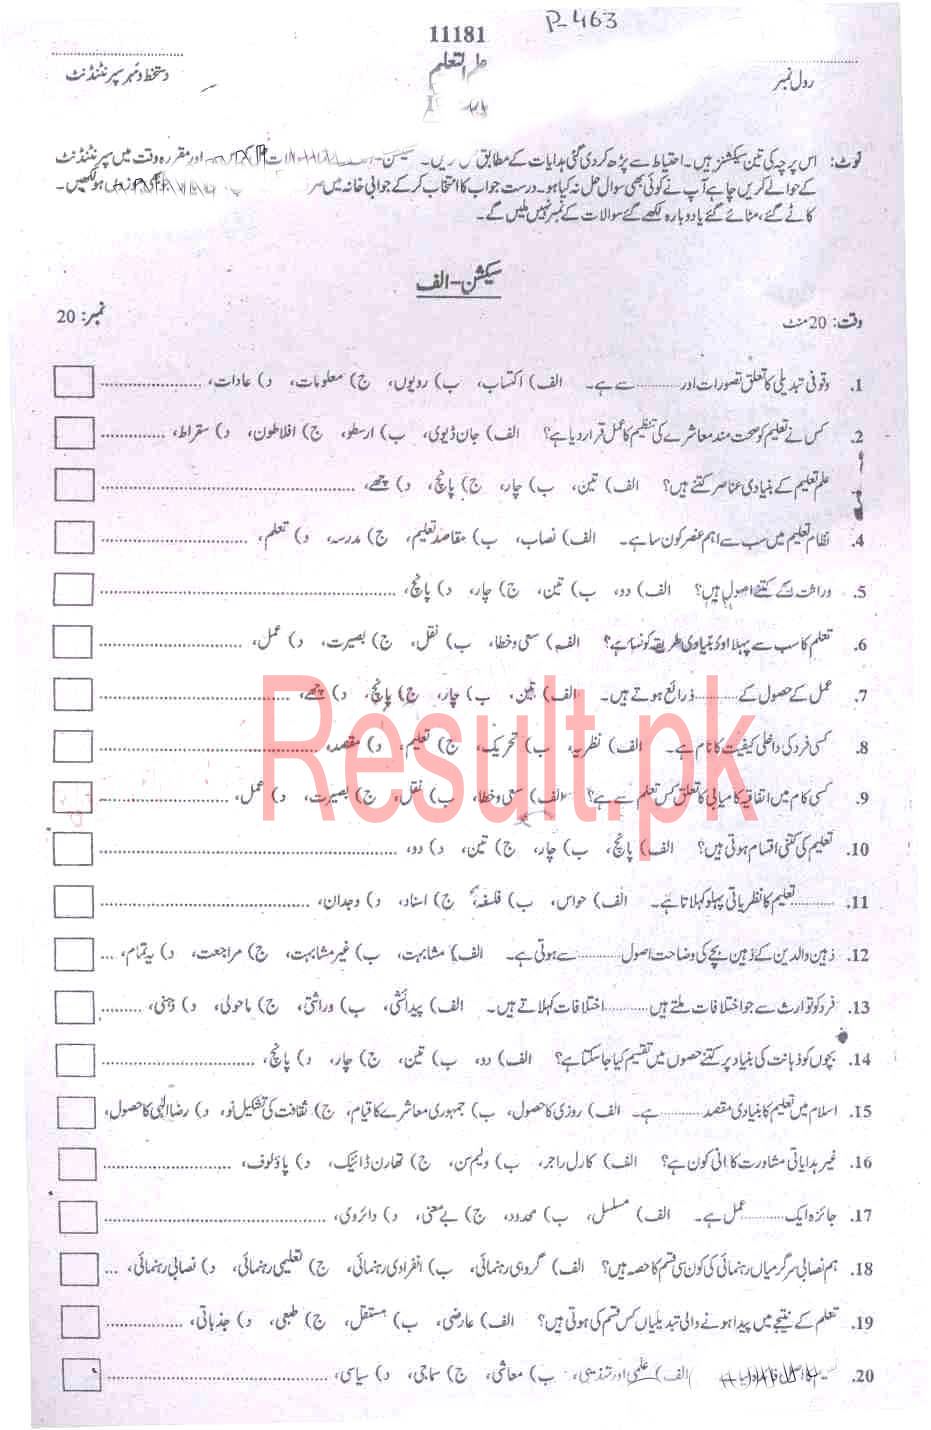 P-463
11181
علم التعلیم
رول نمبر ........................
........................ دستخط و مہر سپرنٹنڈنٹ
نوٹ: اس پرچہ کی تین سیکشنز ہیں۔ احتیاط سے پڑھ کر دی گئی ہدایات کے مطابق کریں۔ سیکشن- اور مقررہ وقت میں سپرنٹنڈنٹ
کے حوالے کریں چاہے آپ نے کوئی بھی سوال حل نہ کیا ہو۔ درست جواب کا انتخاب کر کے جوابی خانہ میں لکھیں۔
کاٹے گئے، مٹائے گئے یا دوبارہ لکھے گئے سوالات کے نمبر نہیں ملیں گے۔
سیکشن-الف
وقت: 20 منٹ نمبر: 20
1. وقوفی تبدیلی کا تعلق تصورات اور .......... سے ہے۔ الف) اکتساب، ب) رویوں، ج) معلومات، د) عادات،
2. کس نے تعلیم کو صحت مند معاشرے کی تنظیم کا عمل قرار دیا ہے؟ الف) جان ڈیوی، ب) ارسطو، ج) افلاطون، د) سقراط،
علم تعلیم کے بنیادی عناصر کتنے ہیں؟ الف) تین، ب) چار، ج) پانچ، د) چھے،
4. نظام تعلیم میں سب سے اہم عنصر کون سا ہے۔ الف) نصاب، ب) مقاصد تعلیم، ج) مدرسہ، د) تعلم،
5. وراثت کے کتنے اصول ہیں؟ الف) دو، ب) تین، ج) چار، د) پانچ،
6. تعلم کا سب سے پہلا اور بنیادی طریقہ کونسا ہے؟ الف) سعی و خطا، ب) نقل، ج) بصیرت، د) عمل،
7. عمل کے حصول کے .......... ذرائع ہوتے ہیں۔ الف) تین، ب) چار، ج) پانچ، د) چھے،
8. کسی فرد کی داخلی کیفیت کا نام ہے۔ الف) نظریہ، ب) تحریک، ج) تعلیم، د) مقصد،
9. کسی کام میں اتفاقیہ کامیابی کا تعلق کس تعلم سے ہے؟ الف) سعی و خطا، ب) نقل، ج) بصیرت، د) عمل،
10. تعلیم کی کتنی اقسام ہوتی ہیں؟ الف) پانچ، ب) چار، ج) تین، د) دو،
11. .......... تعلیم کا نظریاتی پہلو کہلاتا ہے۔ الف) حواس، ب) فلسفہ، ج) اسناد، د) وجدان،
12. ذہین والدین کے ذہین بچے کی وضاحت اصول .......... سے ہوتی ہے۔ الف) مشابہت، ب) غیر مشابہت، ج) مراجعت، د) یہ تمام،
13. فرد کو توارث سے جو اختلافات ملتے ہیں .......... اختلافات کہلاتے ہیں۔ الف) پیدائشی، ب) وراثتی، ج) ماحولی، د) ذہنی،
14. بچوں کو ذہانت کی بنیاد پر کتنے حصوں میں تقسیم کیا جا سکتا ہے؟ الف) دو، ب) تین، ج) چار، د) پانچ،
15. اسلام میں تعلیم کا بنیادی مقصد .......... ہے۔ الف) روزی کا حصول، ب) جمہوری معاشرے کا قیام، ج) ثقافت کی تشکیل نو، د) رضا الٰہی کا حصول،
16. غیر ہدایاتی مشاورت کا بانی کون ہے؟ الف) کارل راجر، ب) ولیم سن، ج) تھارن ڈائیک، د) پاؤلوف،
17. جائزہ ایک .......... عمل ہے۔ الف) مسلسل، ب) محدود، ج) بے معنی، د) دائروی،
18. ہم نصابی سرگرمیاں رہنمائی کی کون سی قسم کا حصہ ہیں؟ الف) گروہی رہنمائی، ب) انفرادی رہنمائی، ج) تعلیمی رہنمائی، د) نصابی رہنمائی،
19. تعلم کے نتیجے میں پیدا ہونے والی تبدیلیاں کس قسم کی ہوتی ہیں؟ الف) عارضی، ب) مستقل، ج) طبعی، د) جذباتی،
20. الف) علمی اور تہذیبی، ب) معاشی، ج) سماجی، د) سیاسی،
Result.pk